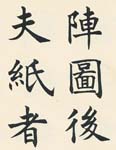 陣圖後
夫紙者